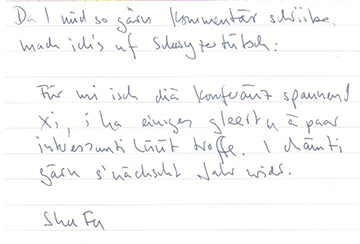 Da I nüd so gärn Kommentär schriibe,
mach ich's uf Schwyzertütsch:
Für mi isch diä Konferänz spannend
xi, i ha einiges gleert u ä paar
intressanti Lüüt troffe. I chämti
gärn s'nächscht Jahr wider.